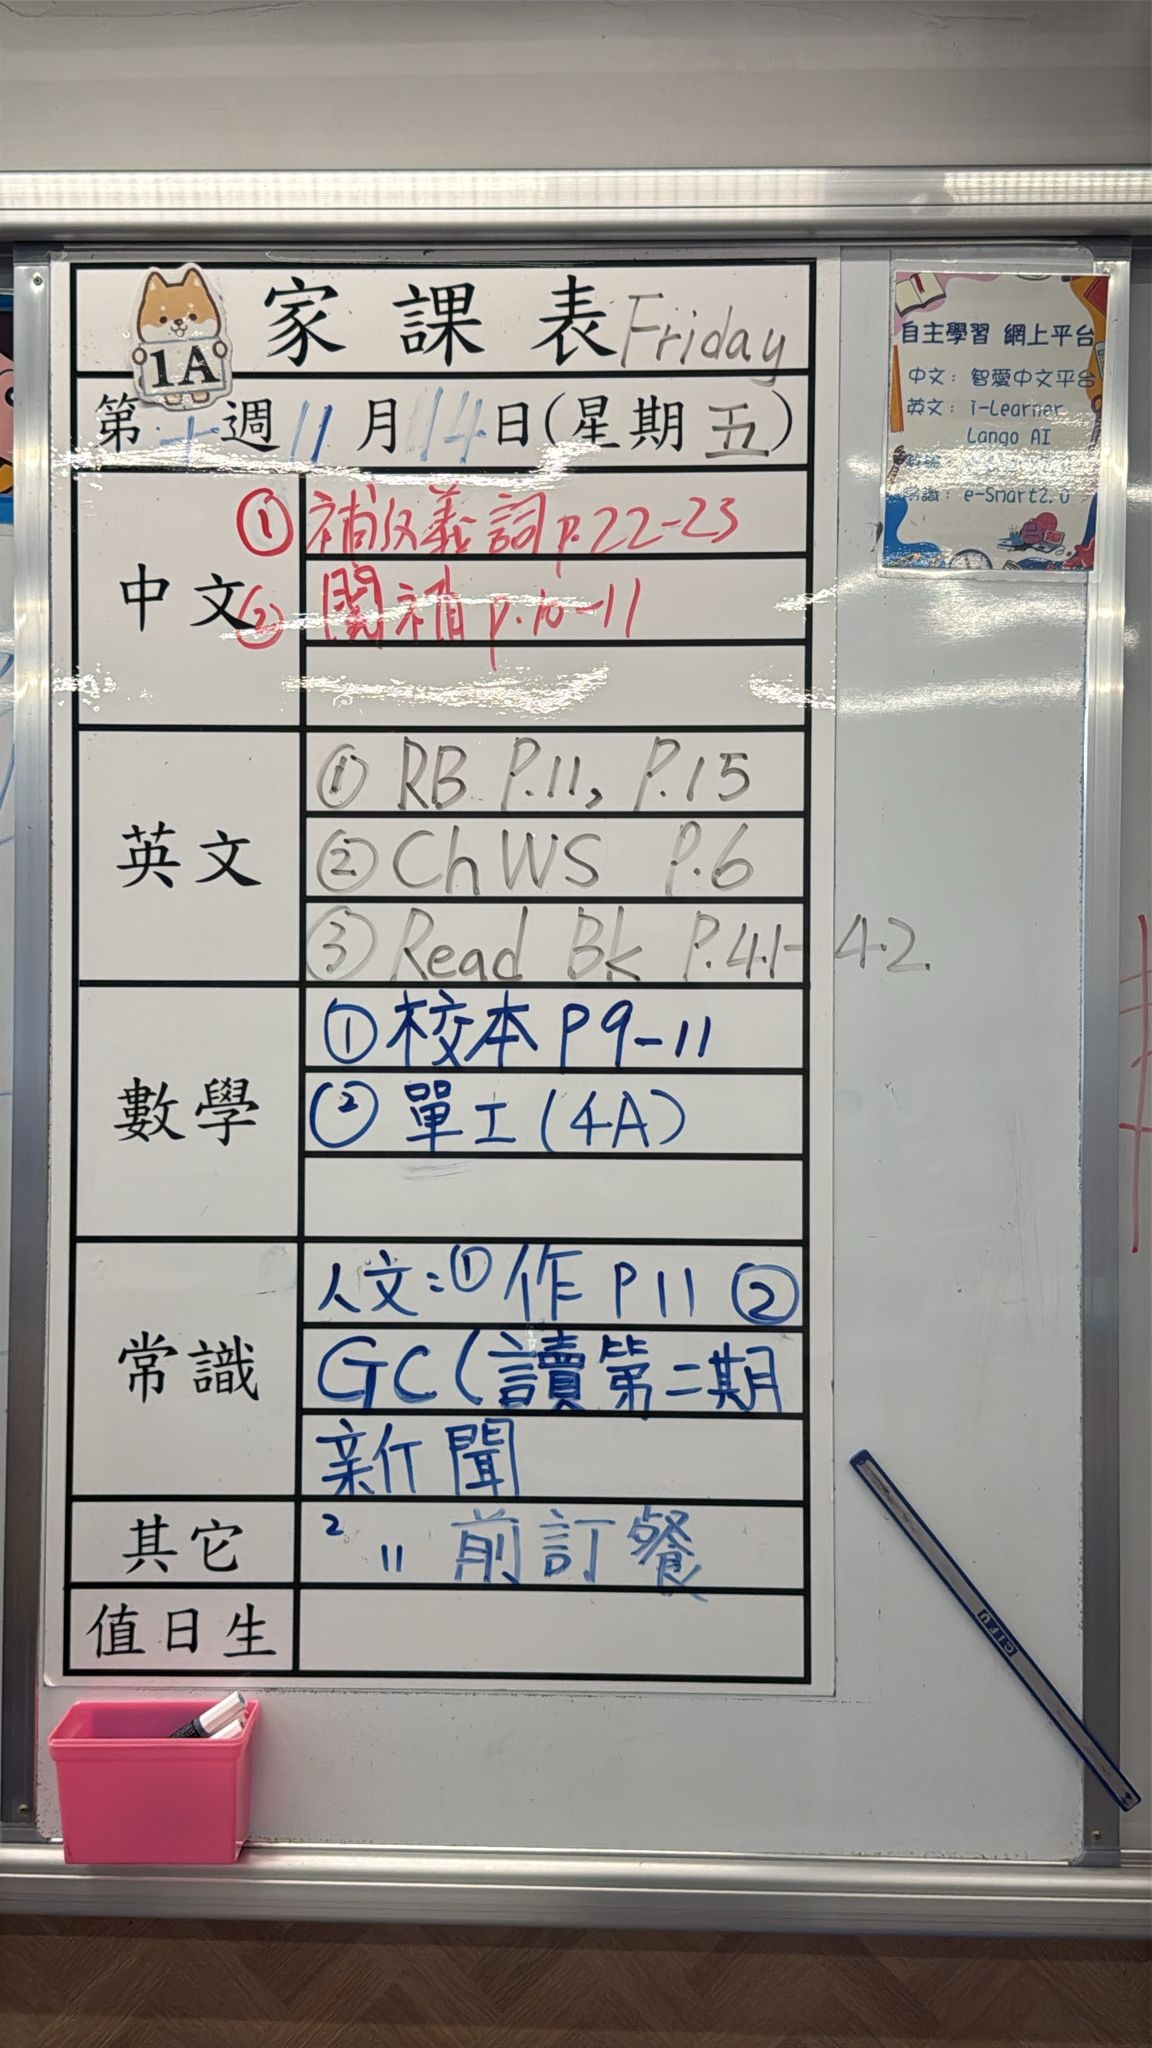 家課表 Friday
1A
第十週 11月14日(星期五)
中文
① 補反義詞 p.22-23
② 閱補 p.10-11
英文
① RB P.11, P.15
② Ch WS P.6
③ Read Bk P.41-42
數學
① 校本 P9-11
② 單工(4A)
常識
人文:① 作 P11 ②
GC(讀第二期
新聞
其它
2 11 前訂餐
值日生
自主學習 網上平台
中文: 智愛中文平台
英文: i-Learner
Lango AI
常識: e-Smart2.0
CIFU